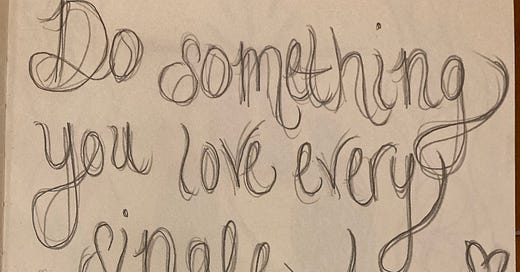 Do something
you love every
single